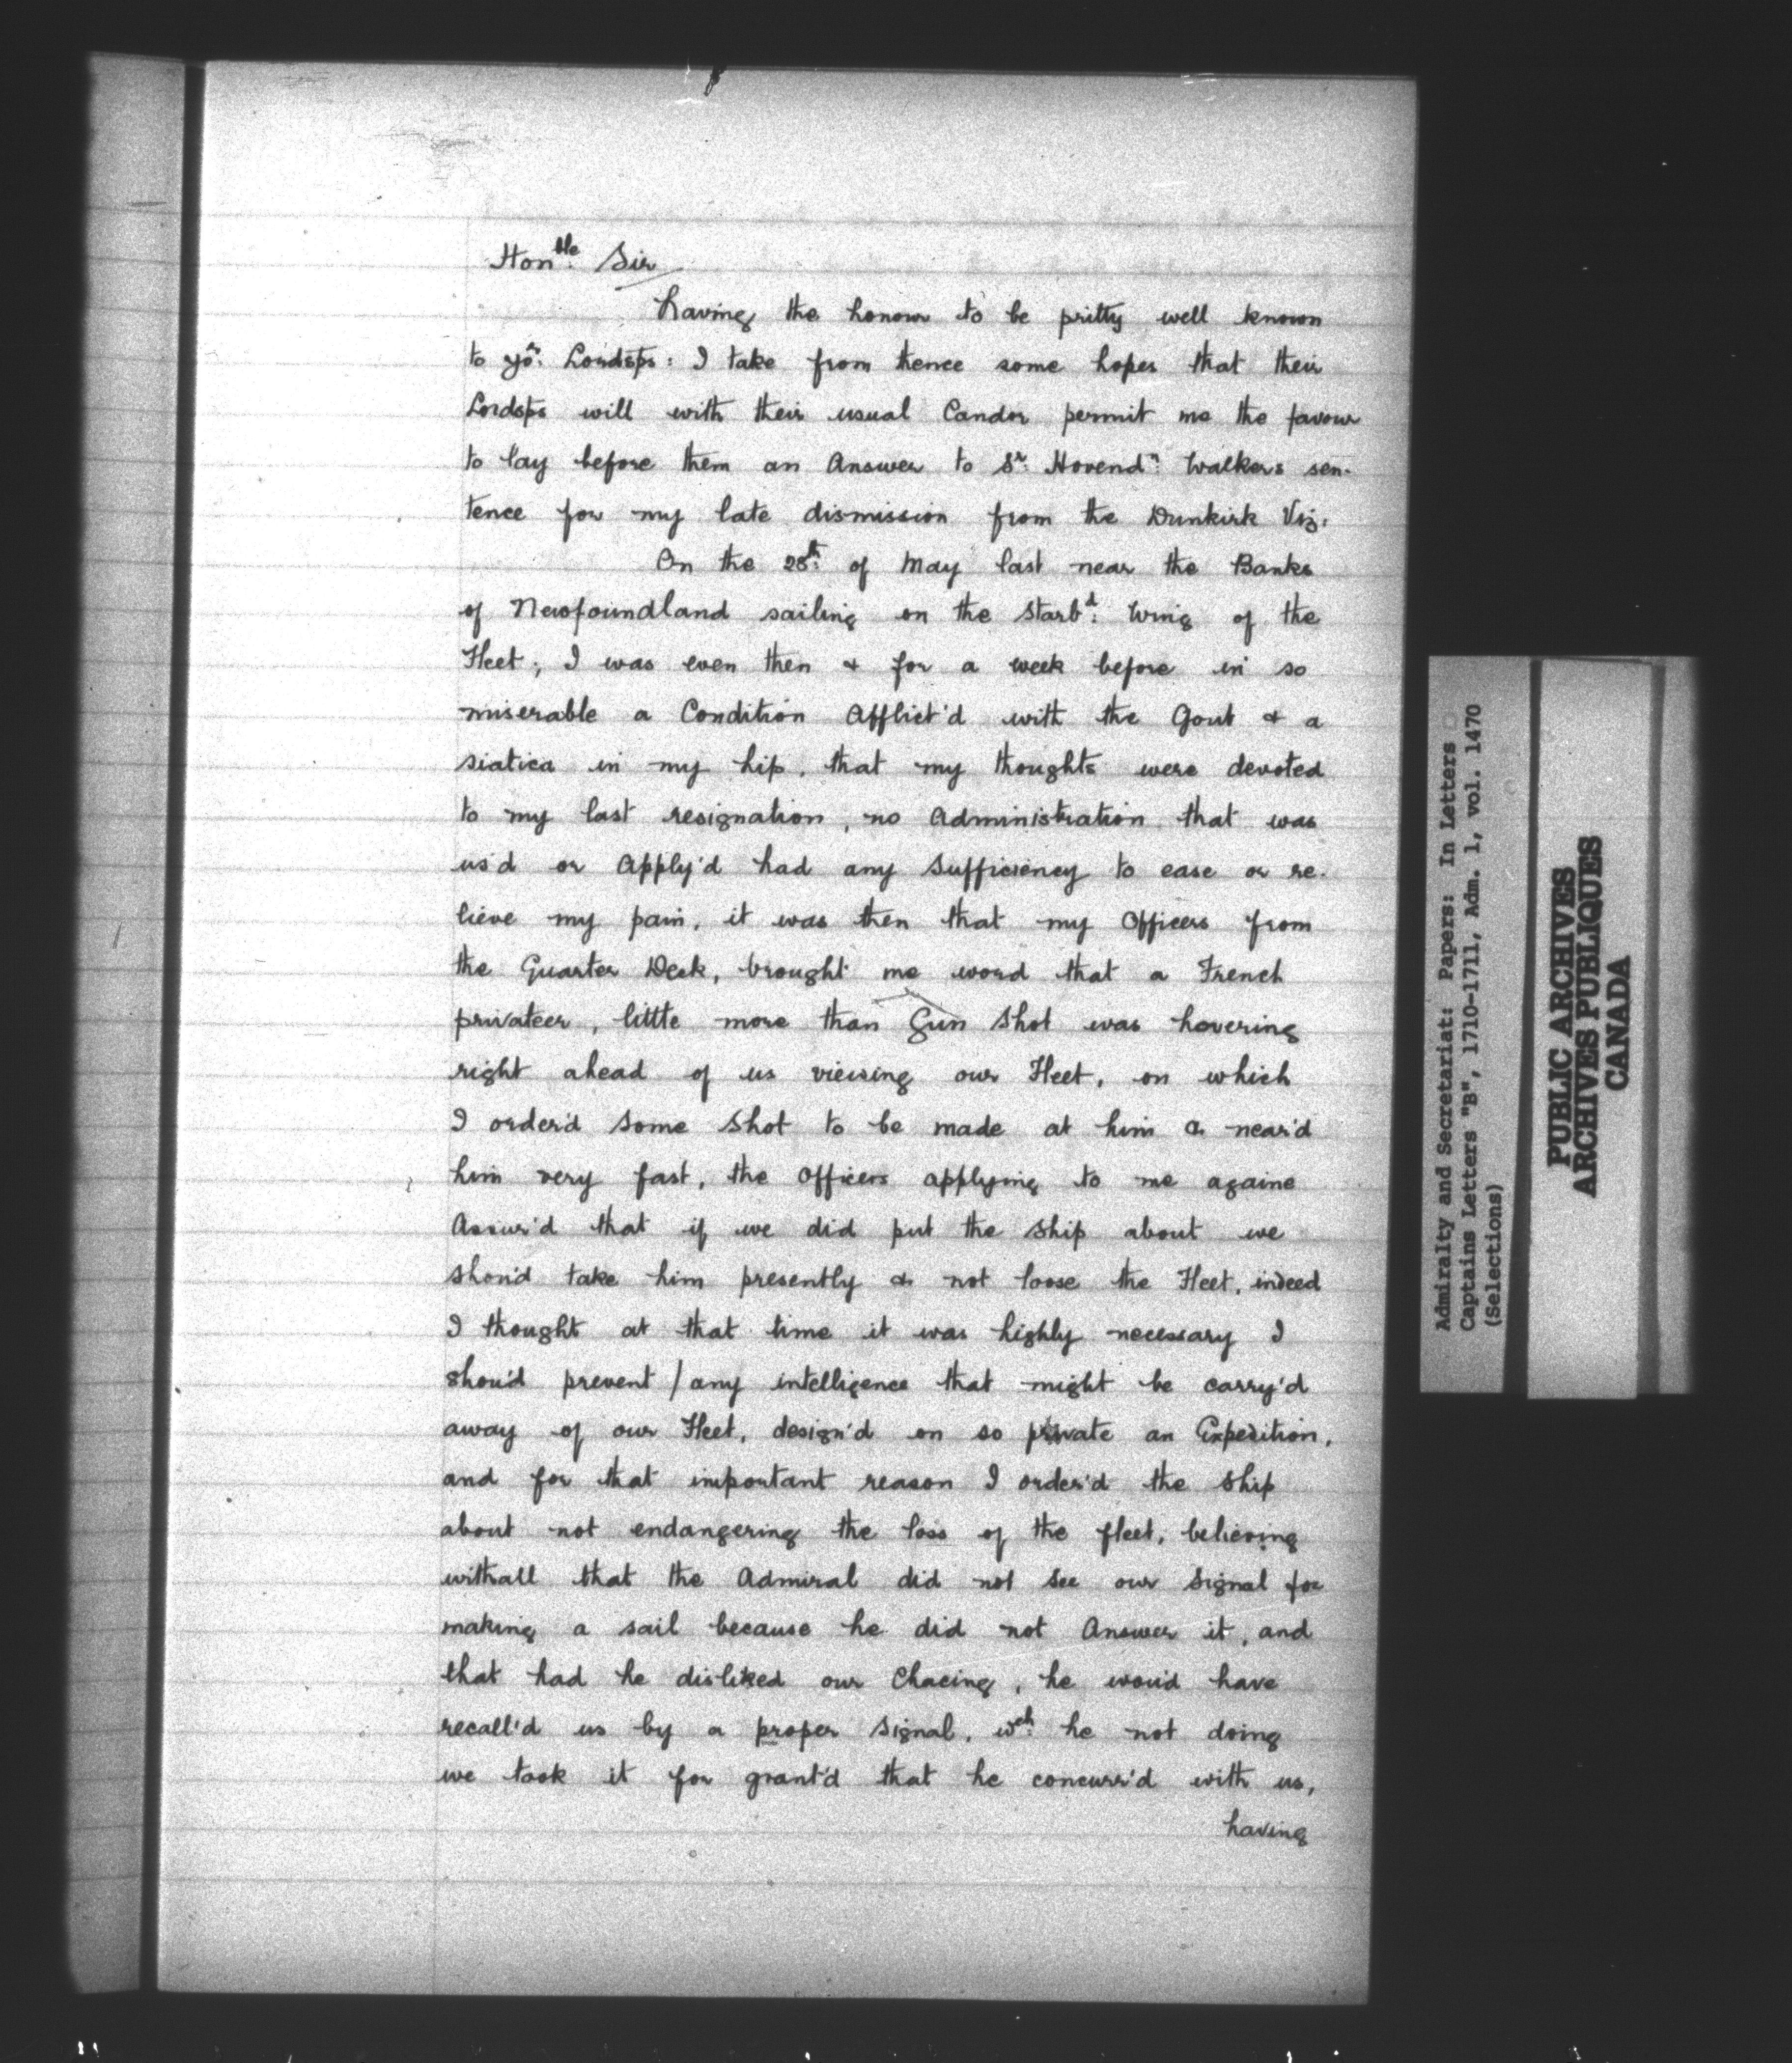 Hon^ble. Sir
having the honour to be pritty well known
to yo^r. Lordsps: I take from thence some hopes that their
Lordsps will with their usual Candor permit me the favour
to lay before them an Answer to S^r. Hovend^n: Walkers sen-
tence for my late dismission from the Dunkirk Viz.
On the 28^th. of May last near the Banks
of Newfoundland sailing on the Starb^d: Wing of the
Fleet; I was even then & for a week before in so
miserable a Condition Afflict'd with the Gout & a
siatica in my hip, that my thoughts were devoted
to my last resignation, no Administration that was
us'd or Apply'd had any Sufficiency to ease or re-
lieve my pain, it was then that my Officers from
the Quarter Deck, brought me word that a French
privateer, little more than Gun Shot was hovering
right ahead of us viewing our Fleet, on which
I order'd Some Shot to be made at him & near'd
him very fast, the Officers applying to me againe
Assur'd that if we did put the Ship about we
shou'd take him presently & not loose the Fleet, indeed
I thought at that time it was highly necessary I
shou'd prevent / any intelligence that might be carry'd
away of our Fleet, design'd on so private an Expedition,
and for that important reason I order'd the Ship
about not endangering the loss of the fleet, believing
withall that the Admiral did not See our Signal for
making a sail because he did not Answer it, and
that had he disliked our Chacing, he wou'd have
recall'd us by a proper Signal, w^ch. he not doing
we took it for grant'd that he concurr'd with us,
having
Admiralty and Secretariat: Papers: In Letters
Captains Letters "B", 1710-1711, Adm. 1, vol. 1470
(Selections)
PUBLIC ARCHIVES
ARCHIVES PUBLIQUES
CANADA